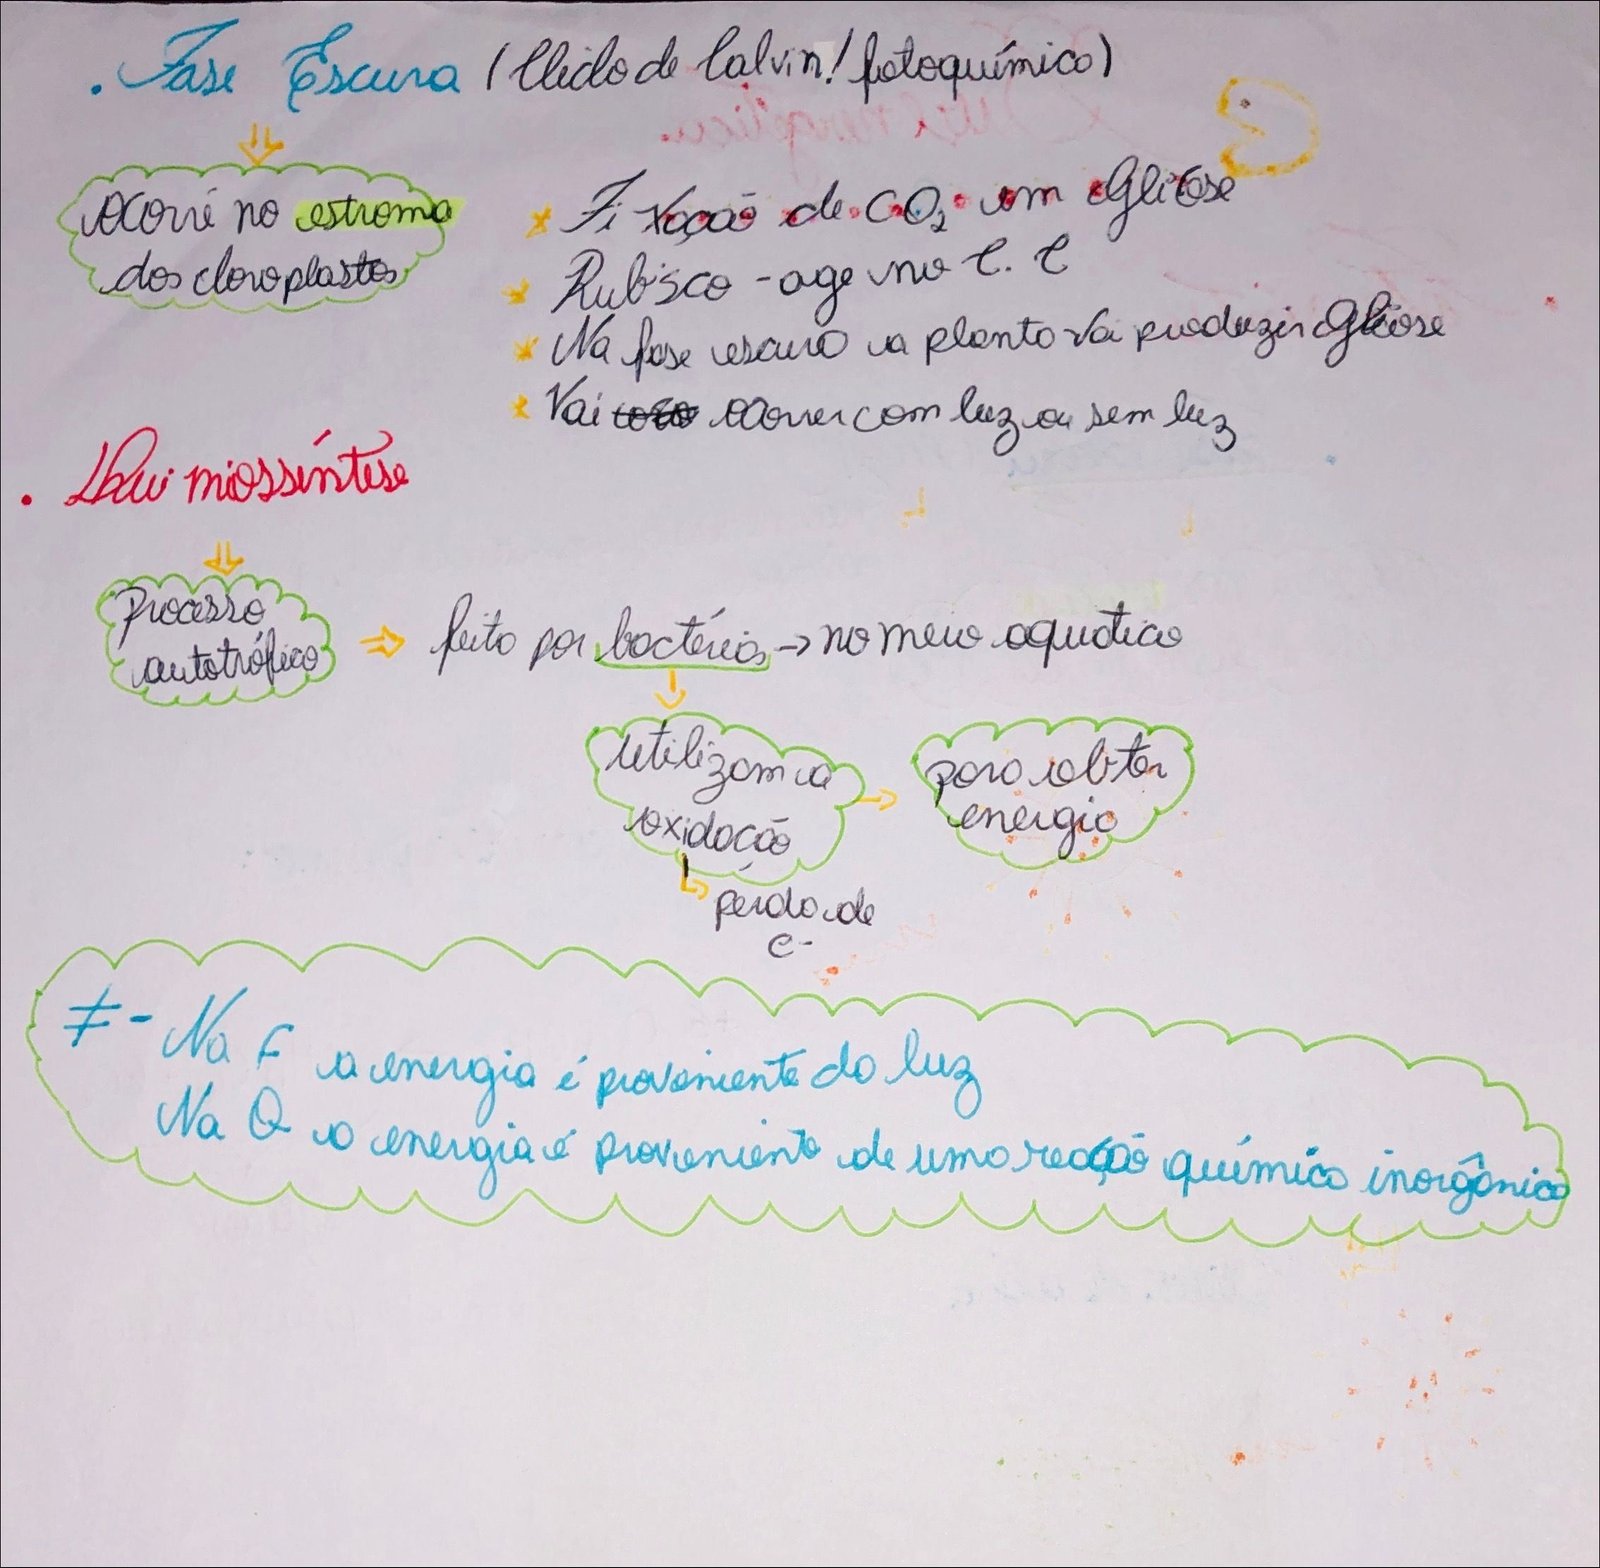 . Fase Escura (Ciclo de Calvin/ fotoquímico)
ocorre no estroma
dos cloroplastos
Fixação de CO2 em glicose
Rubisco - age no C. C
Na fase escura a planta vai produzir glicose
Vai ocorrer com luz ou sem luz
. Quimiossíntese
Processo
autotrófico
feito por bactérias → no meio aquático
utilizam a
oxidação
para obter
energia
perda de
e-
≠ - Na F a energia é proveniente da luz
Na Q a energia é proveniente de uma reação química inorgânica